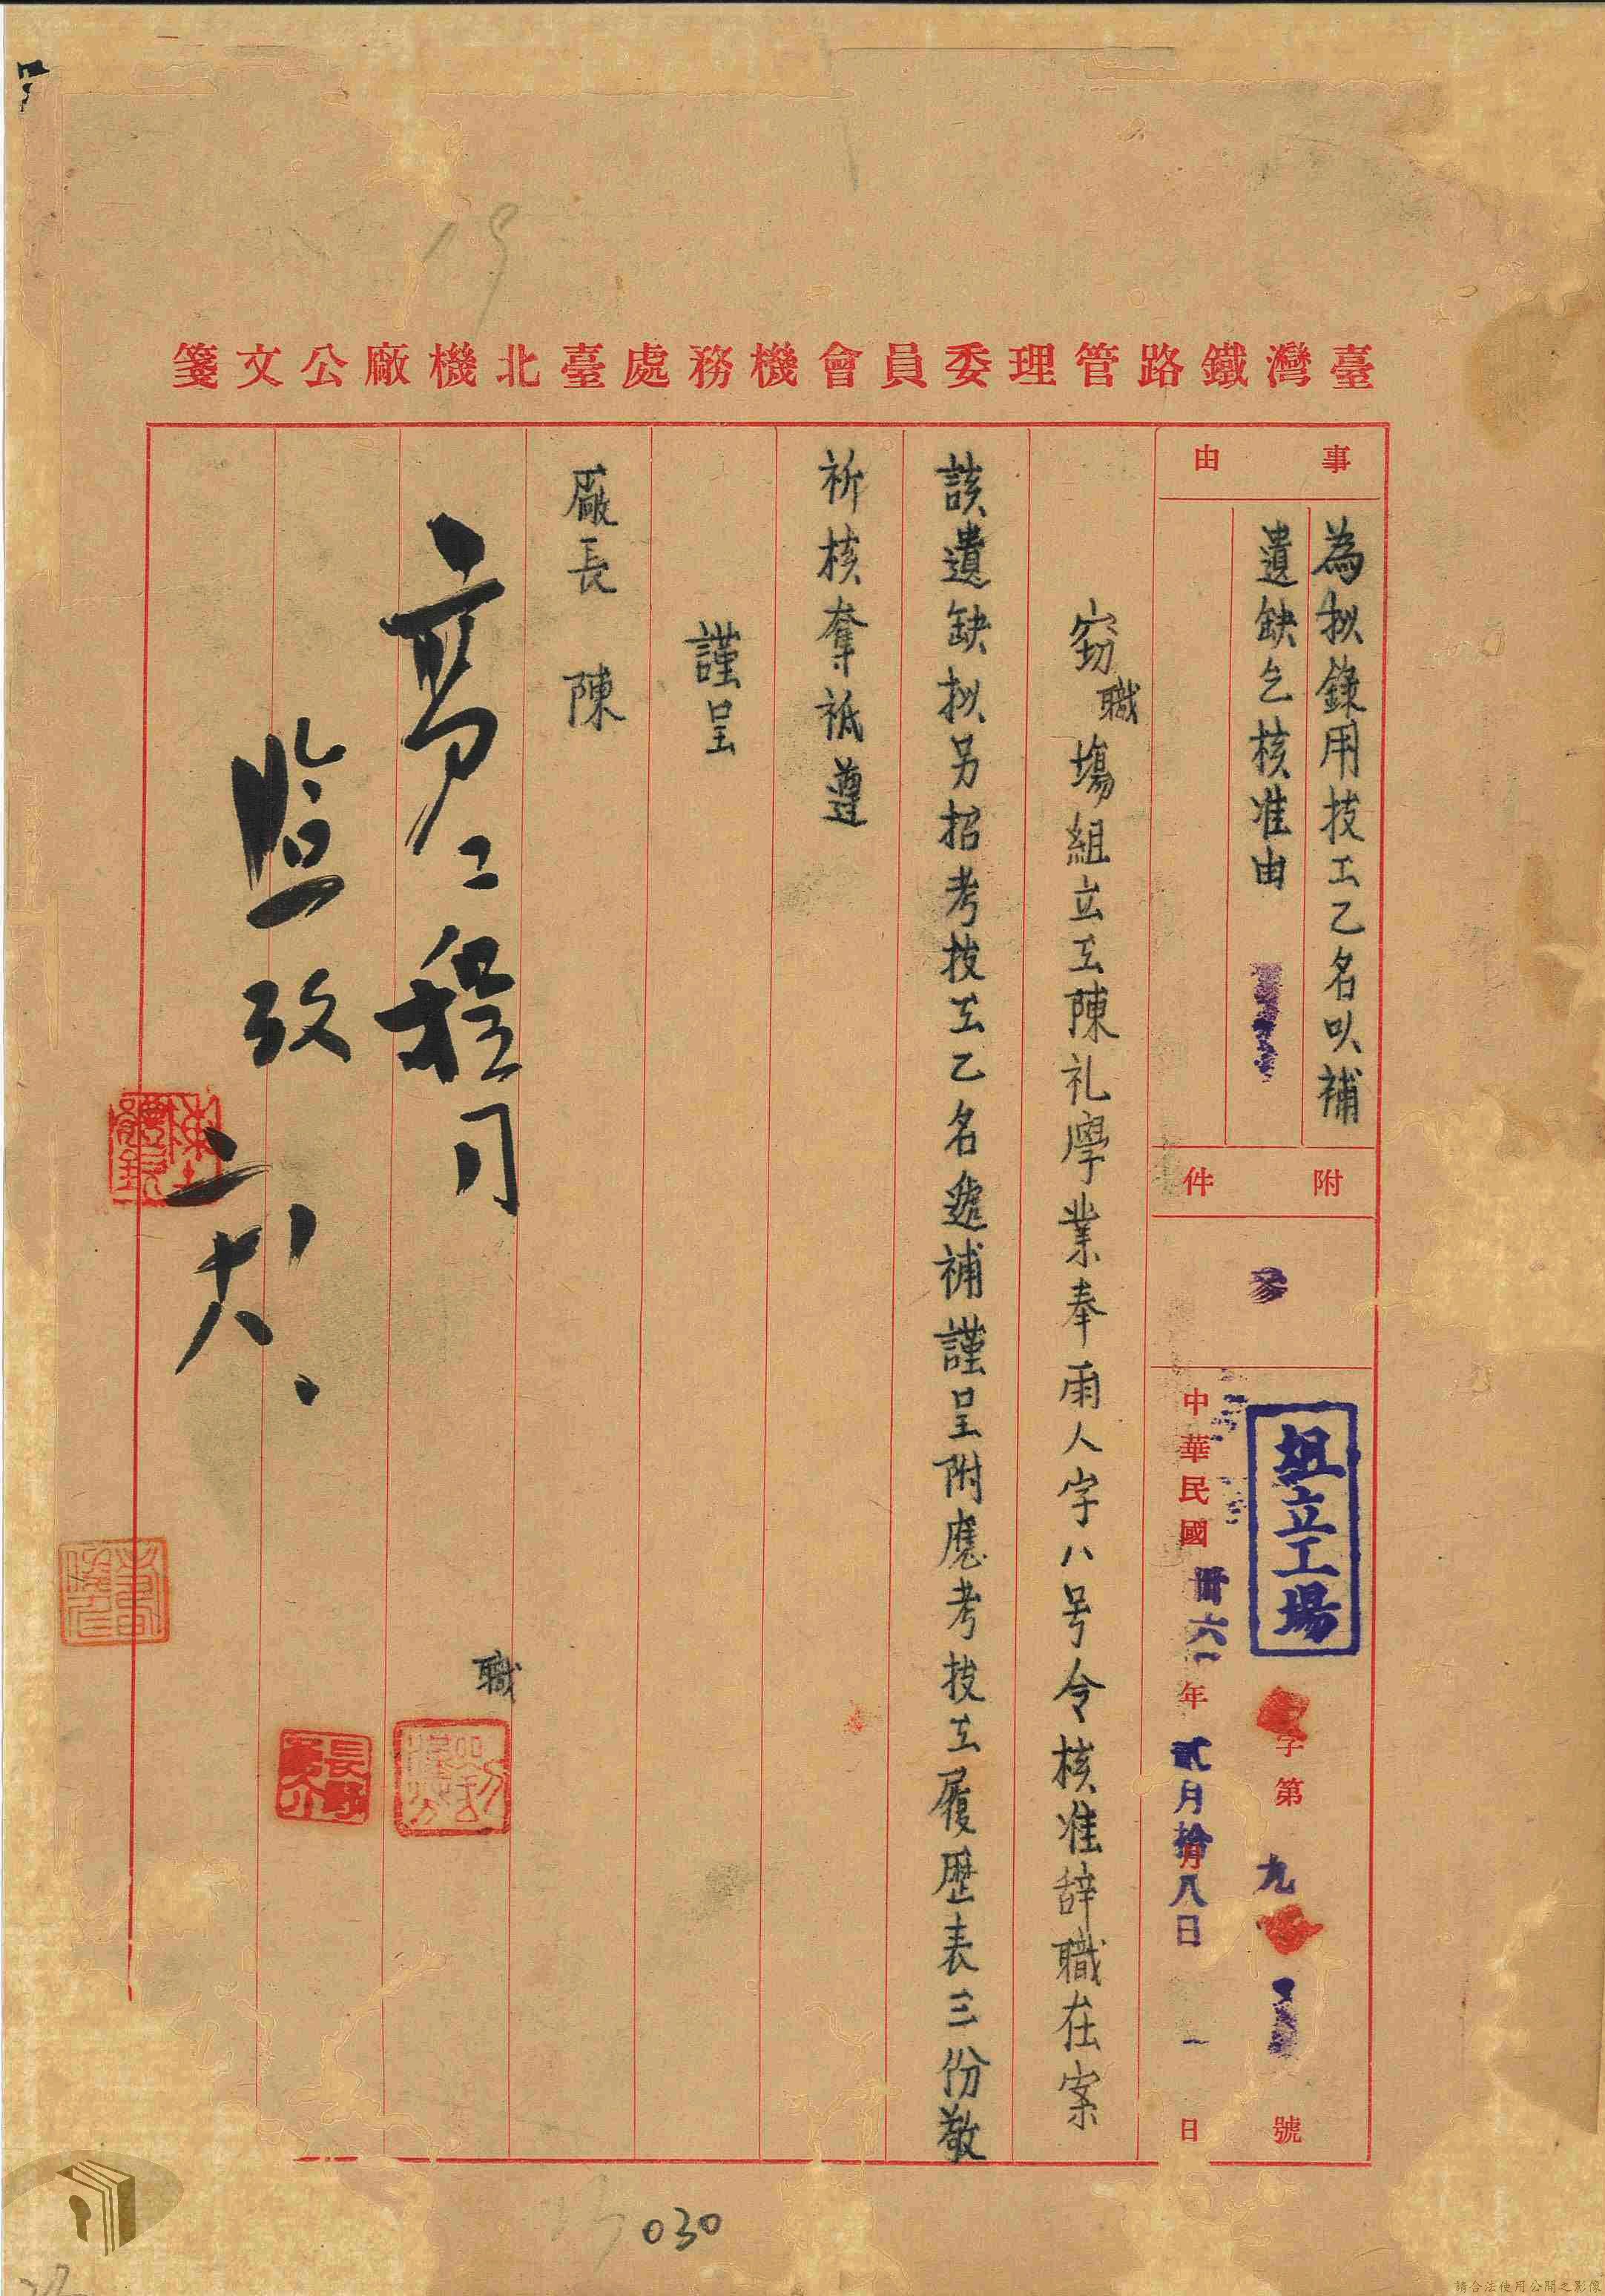 臺灣鐵路管理委員會機務處臺北機廠公文箋
事由
為拟錄用技工乙名以補
遺缺乞核准由
附件
參
組立工場
字第九號
中華民國卅六年貳月拾八日
年月日
竊職場組立工陳礼學業奉雨人字八号令核准辞職在案
該遺缺拟另招考技工乙名遞補謹呈附應考技工履歷表三份敬
祈核奪祗遵
謹呈
廠長 陳
職
二十八
030
請合法使用公開之影像